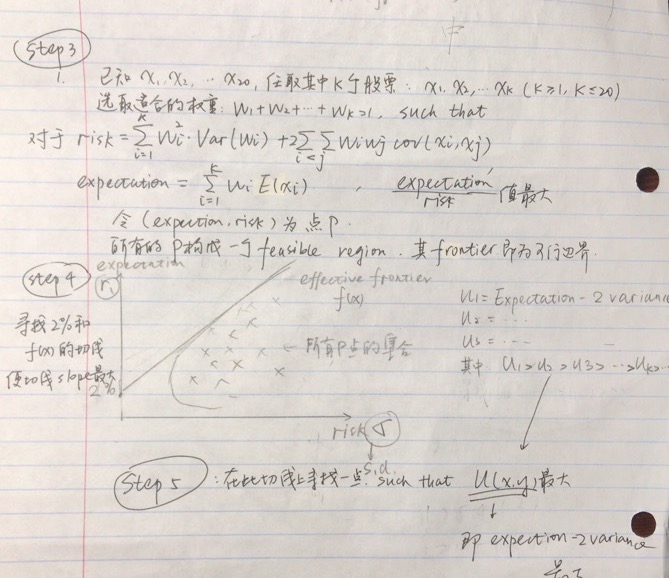 中
Step 3
1. 已知 x₁, x₂, … x₂₀, 任取其中 K 个股票: x₁, x₂, … xₖ (K≥1, K≤20)
选取适合的权重: W₁+W₂+…+Wₖ=1, such that
对于 risk = Σ_{i=1}^{K} Wi²·Var(Wi) + 2ΣΣ_{i<j} WiWj cov(xi, xj)
expectation = Σ_{i=1}^{K} Wi E(xi) , expectation/risk 值最大
令 (expection, risk) 为点 P.
所有的 P 构成一个 feasible region. 其 frontier 即为可行边界.
Step 4
expectation
r,
effective frontier
f(x)
寻找 2% 和
f(x) 的切线
使切线 slope 最大
2%
所有 P 点的集合
risk σ
s.d.
U₁ = Expectation - 2 variance
U₂ = ...
U₃ = ...
其中 U₁ > U₂ > U₃ > … > Uₖ > …
Step 5 : 在此切线上寻找一点. such that U(x,y) 最大
即 expection - 2 variance